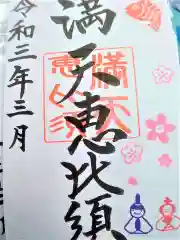 満天恵比須
令和三年三月
満天
恵比須